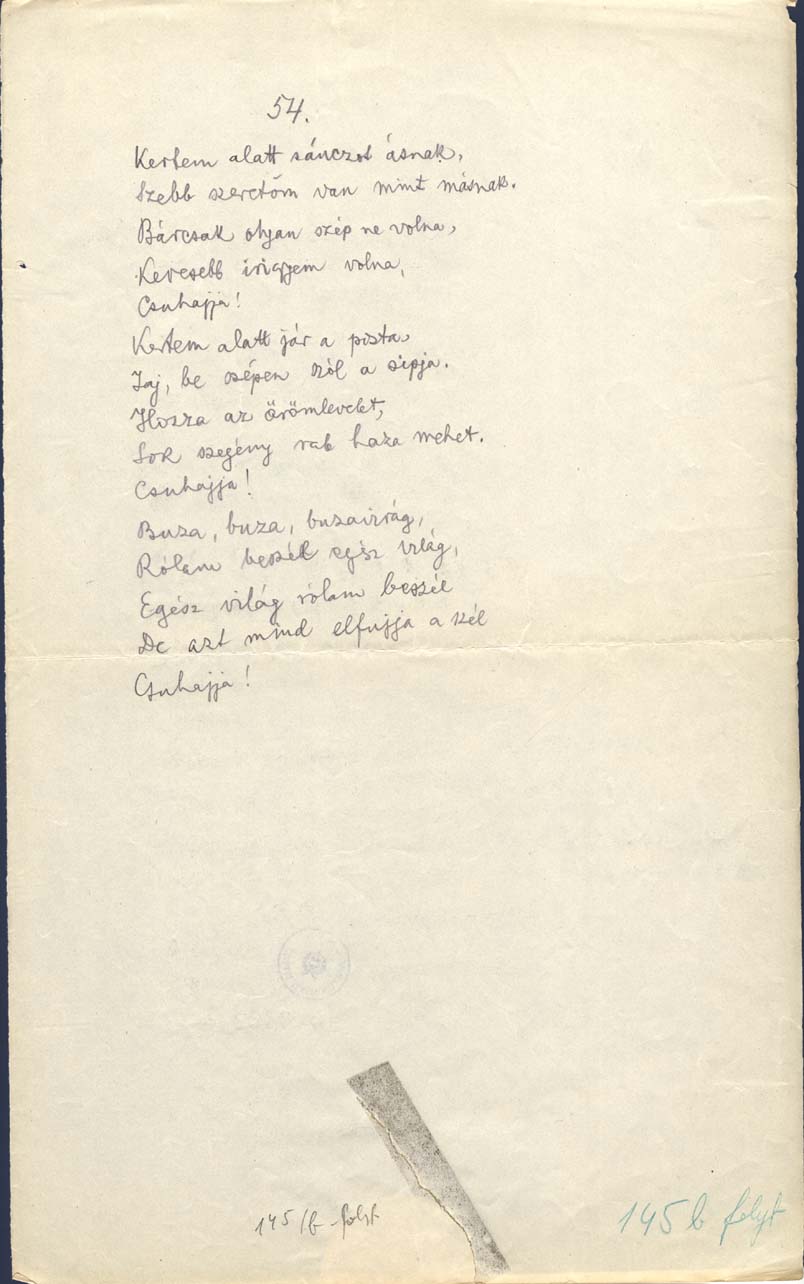 54.
Kertem alatt sánczot ásnak,
Szebb szeretőm van mint másnak.
Bárcsak olyan szép ne volna,
Kevesebb irigyem volna,
Csuhajja!
Kertem alatt jár a posta,
Jaj, be szépen szól a sipja.
Hozza az örömlevelet,
Sok szegény rab haza mehet.
Csuhajja!
Buza, buza, buzavirág,
Rólam beszél egész világ,
Egész világ rólam beszél
De azt mind elfujja a szél
Csuhajja!
145/b folyt
145 b folyt